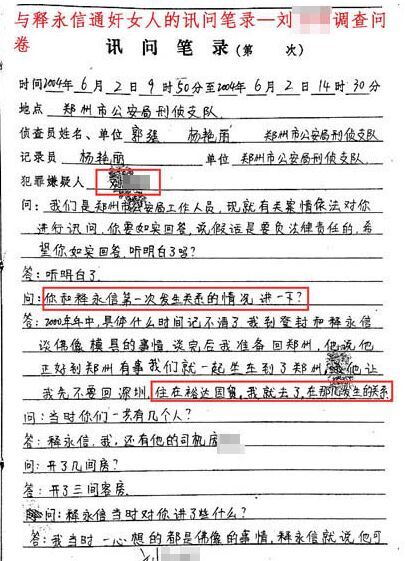 与释永信通奸女人的讯问笔录—刘 调查问
卷
讯 问 笔 录(第 次)
时间2004年6月2日9时50分至2004年6月2日14时30分
地点 郑州市公安局刑侦支队
侦查员姓名、单位 郭 杨艳丽 郑州市公安局刑侦支队
记录员 杨艳丽 单位 郑州市公安局刑侦支队
犯罪嫌疑人 刘
问:我们是郑州市公安局工作人员,现就有关案情依法对你
进行讯问,你要如实回答,说假话是要负法律责任的,希
望你如实回答,听明白了吗?
答:听明白了.
问:你和释永信第一次发生关系的情况讲一下?
答:2000年年中,具体什么时间记不清了我到登封和释永信
谈佛像模具的事情谈完后我准备回郑州,他说他
正好到郑州有事我们就一起坐车到了郑州, 他让
我先不要回深圳,住在裕达国贸,我就去了,在那儿发生的关系
问:当时你们一共有几个人?
答:释永信.我,还有他的司机房
问:开了几间房?
答:开了三间客房.
问:释永信当时对你讲了些什么?
答:我当时一心想的都是佛像的事情,释永信就说他可